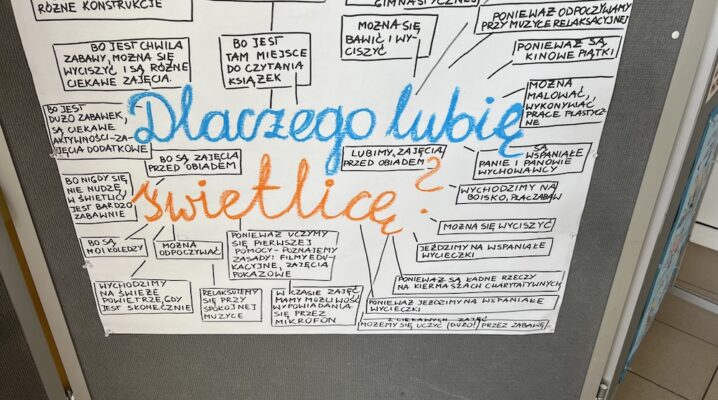 RÓŻNE KONSTRUKCJE
GIMNASTYCZNEJ
PONIEWAŻ ODPOCZYWAMY
PRZY MUZYCE RELAKSACYJNEJ
BO JEST CHWILA
ZABAWY, MOŻNA SIĘ
WYCISZYĆ I SĄ RÓŻNE
CIEKAWE ZAJĘCIA.
BO JEST
TAM MIEJSCE
DO CZYTANIA
KSIĄŻEK
MOŻNA SIĘ
BAWIĆ I WY-
CISZYĆ
PONIEWAŻ SĄ
KINOWE PIĄTKI
MOŻNA
MALOWAĆ,
WYKONYWAĆ
PRACE PLASTYCZ-
NE
BO JEST
DUŻO ZABAWEK,
SĄ CIEKAWE
AKTYWNOŚCI-ZA-
JĘCIA DODATKOWE
Dlaczego lubię
świetlicę?
BO SĄ ZAJĘCIA
PRZED OBIADEM
LUBIMY, ZAJĘCIA
PRZED OBIADEM
SĄ WSPANIAŁE
PANIE I PANOWIE
WYCHOWAWCY
BO NIGDY SIĘ
NIE NUDZĘ, W
ŚWIETLICY
JEST BARDZO
ZABAWNIE
WYCHODZIMY NA
BOISKO, PLAC ZABAW
MOŻNA SIĘ WYCISZYĆ
BO SĄ
MOI KOLEDZY
MOŻNA
ODPOCZYWAĆ
PONIEWAŻ UCZYMY
SIĘ PIERWSZEJ
POMOCY-POZNAJEMY
ZASADY: FILMY EDU-
KACYJNE, ZAJĘCIA
POKAZOWE
JEŹDZIMY NA WSPANIAŁE
WYCIECZKI
PONIEWAŻ SĄ ŁADNE RZECZY
NA KIERMASZACH CHARYTATYWNYCH
WYCHODZIMY
NA ŚWIEŻE
POWIETRZE, GDY
JEST SŁONECZNIE
RELAKSUJEMY
SIĘ PRZY
SPOKOJNEJ
MUZYCE
W CZASIE ZAJĘĆ
MAMY MOŻLIWOŚĆ
WYPOWIADANIA
SIĘ PRZEZ
MIKROFON
PONIEWAŻ JEŹDZIMY NA WSPANIAŁE
WYCIECZKI
Z CIEKAWYCH ZAJĘĆ
MOŻEMY SIĘ UCZYĆ (DUŻO!) PRZEZ ZABAWĘ